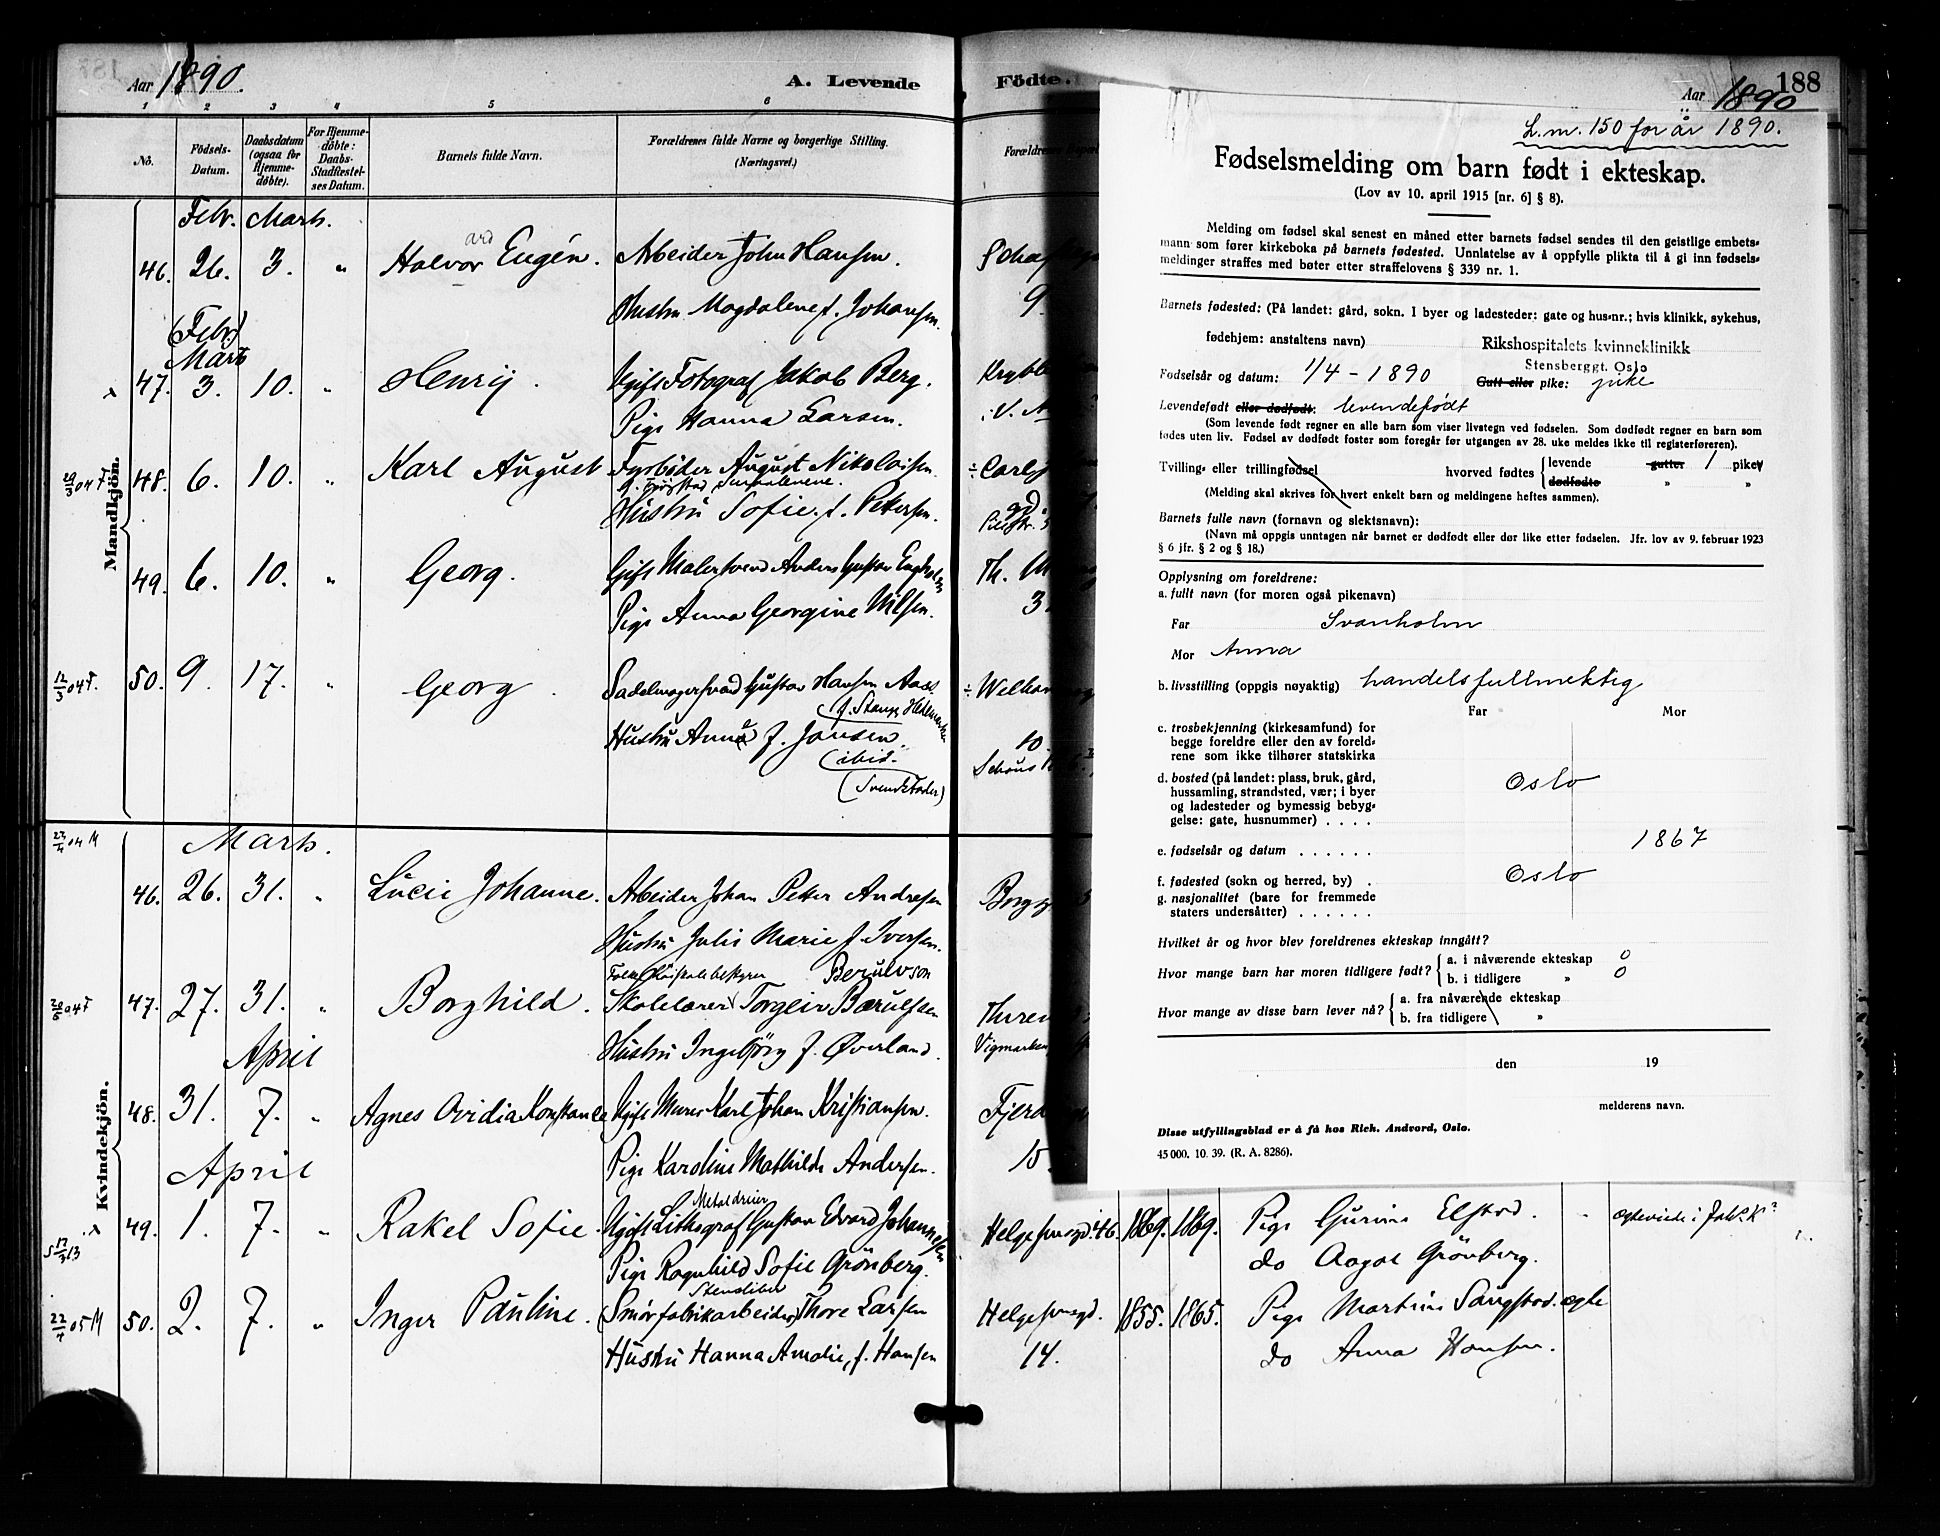 Aar 1890.
A. Levende
1 2 3 4 5 6
No.
Födsels-Datum.
Daabsdatum (ogsaa for Hjemme-døbte).
For Hjemme-døbte: Daabs-Stadfæstel-ses Datum.
Barnets fulde Navn.
Forældrenes fulde Navne og borgerlige Stilling.
(Næringsvei.)
Mandkjön.
Febr. Marts.
46. 26. 3. " Halvor Eugén. Arbeider John Hansen.
ard
Hustru Magdalene f. Johansen.
(Febr.)
Marts
47. 3. 10. " Henry. Ugift Fotograf Jakob Berg.
Pige Hanna Larsen.
48. 6. 10. " Karl August Fyrbøder August Nikolaisen
Hustru Sofie, f. Petersen.
49. 6. 10. " Georg. Gift Malersvend Anders Gustav Engholm
Pige Anna Georgine Nilsen.
50. 9. 17. " Georg. Sadelmagersvend Gustav Hansen
Hustru Anna f. Jansen.
(ibid.
Kvindekjön.
Marts.
46. 26. 31. " Lucie Johanne. Arbeider Johan Peter Andresen
Hustru Julie Marie f. Iversen.
Berulvson
47. 27. 31. " Borghild. Skolelærer Torgeir Bærulfsen
Hustru Ingebjörg f. Øverland.
April
48. 31. 7. " Agnes Ovidia Konstance Ugift Murer Karl Johan Kristiansen.
April
Pige Karoline Mathilde Andersen.
Metaldreier
49. 1. 7. " Rakel Sofie. Ugift Lithograf Gustav Edvard Johannesen
Pige Ragnhild Sofie Grönberg.
50. 2. 7. " Inger Pauline. Smörfabrikarbeider Thore Larsen
Hustru Hanna Amalie, f. Hansen
Födte.
Aar 1890
188
9.
10
15.
Helgesensgd. 46. 1869. 1869. Pige Gurine Elstad. "
do Aagot Grönberg.
Helgesensgd. 1855. 1865. Pige Martine Sangstad. ægte
14. do Anna Hansen.
L.m. 150 for år 1890.
Fødselsmelding om barn født i ekteskap.
(Lov av 10. april 1915 [nr. 6] § 8).
Melding om fødsel skal senest en måned etter barnets fødsel sendes til den geistlige embets-
mann som fører kirkeboka på barnets fødested. Unnlatelse av å oppfylle plikta til å gi inn fødsels-
meldinger straffes med bøter etter straffelovens § 339 nr. 1.
Barnets fødested: (På landet: gård, sokn. I byer og ladesteder: gate og hus-nr.; hvis klinikk, sykehus,
fødehjem: anstaltens navn) Rikshospitalets kvinneklinikk
Stensberggt. Oslo
Fødselsår og datum: 1/4 - 1890 Gutt eller pike: pike
Levendefødt eller dødfødt: levendefødt
(Som levende født regner en alle barn som viser livstegn ved fødselen. Som dødfødt regner en barn som
fødes uten liv. Fødsel av dødfødt foster som foregår før utgangen av 28. uke meldes ikke til registerføreren).
Tvilling- eller trillingfødsel hvorved fødtes { levende gutter 1 piker
dødfødte " "
(Melding skal skrives for hvert enkelt barn og meldingene heftes sammen).
Barnets fulle navn (fornavn og slektsnavn):
(Navn må oppgis unntagen når barnet er dødfødt eller dør like etter fødselen. Jfr. lov av 9. februar 1923
§ 6 jfr. § 2 og § 18.)
Opplysning om foreldrene:
a. fullt navn (for moren også pikenavn)
Far Svanholm
Mor Anna
b. livsstilling (oppgis nøyaktig) handelsfullmektig
Far Mor
c. trosbekjenning (kirkesamfund) for
begge foreldre eller den av foreld-
rene som ikke tilhører statskirka
d. bosted (på landet: plass, bruk, gård,
hussamling, strandsted, vær; i byer
og ladesteder og bymessig bebyg-
gelse: gate, husnummer) . . . . Oslo
e. fødselsår og datum . . . . . . 1867
f. fødested (sokn og herred, by) . Oslo
g. nasjonalitet (bare for fremmede
staters undersåtter) . . . . . .
Hvilket år og hvor blev foreldrenes ekteskap inngått?
Hvor mange barn har moren tidligere født? { a. i nåværende ekteskap 0
b. i tidligere " 0
Hvor mange av disse barn lever nå? { a. fra nåværende ekteskap
b. fra tidligere "
den 19
melderens navn.
Disse utfyllingsblad er å få hos Rich. Andvord, Oslo.
45 000. 10. 39. (R. A. 8286).